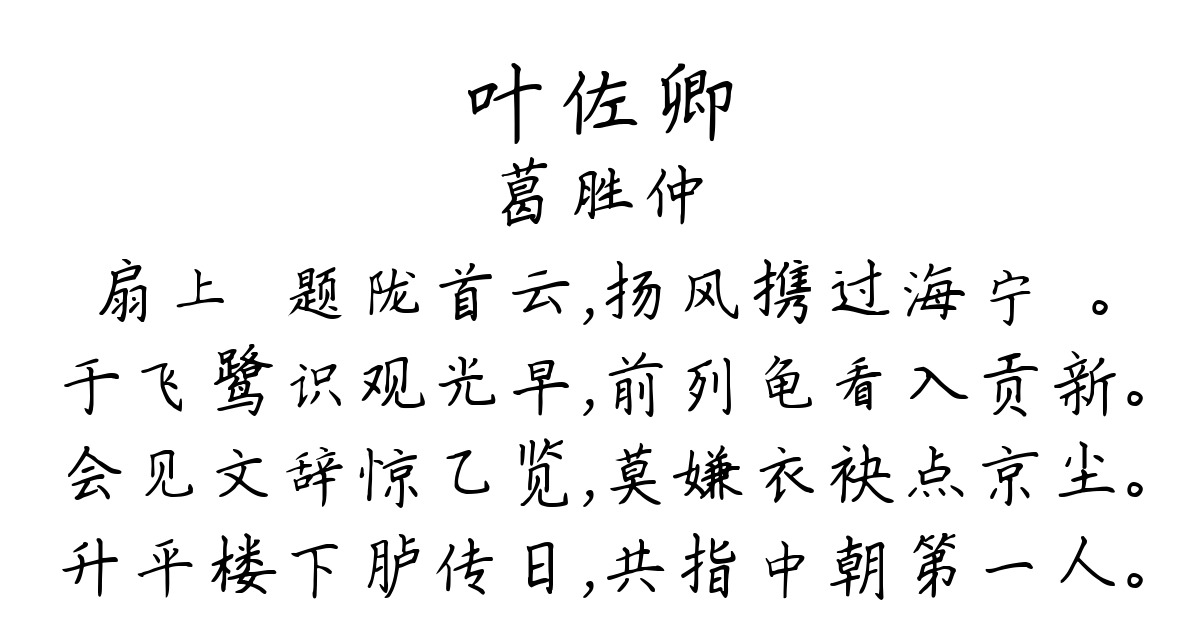 叶佐卿
葛胜仲
扇上 题陇首云,扬风携过海宁 。
于飞鹭识观光早,前列龟看入贡新。
会见文辞惊乙览,莫嫌衣袂点京尘。
升平楼下胪传日,共指中朝第一人。